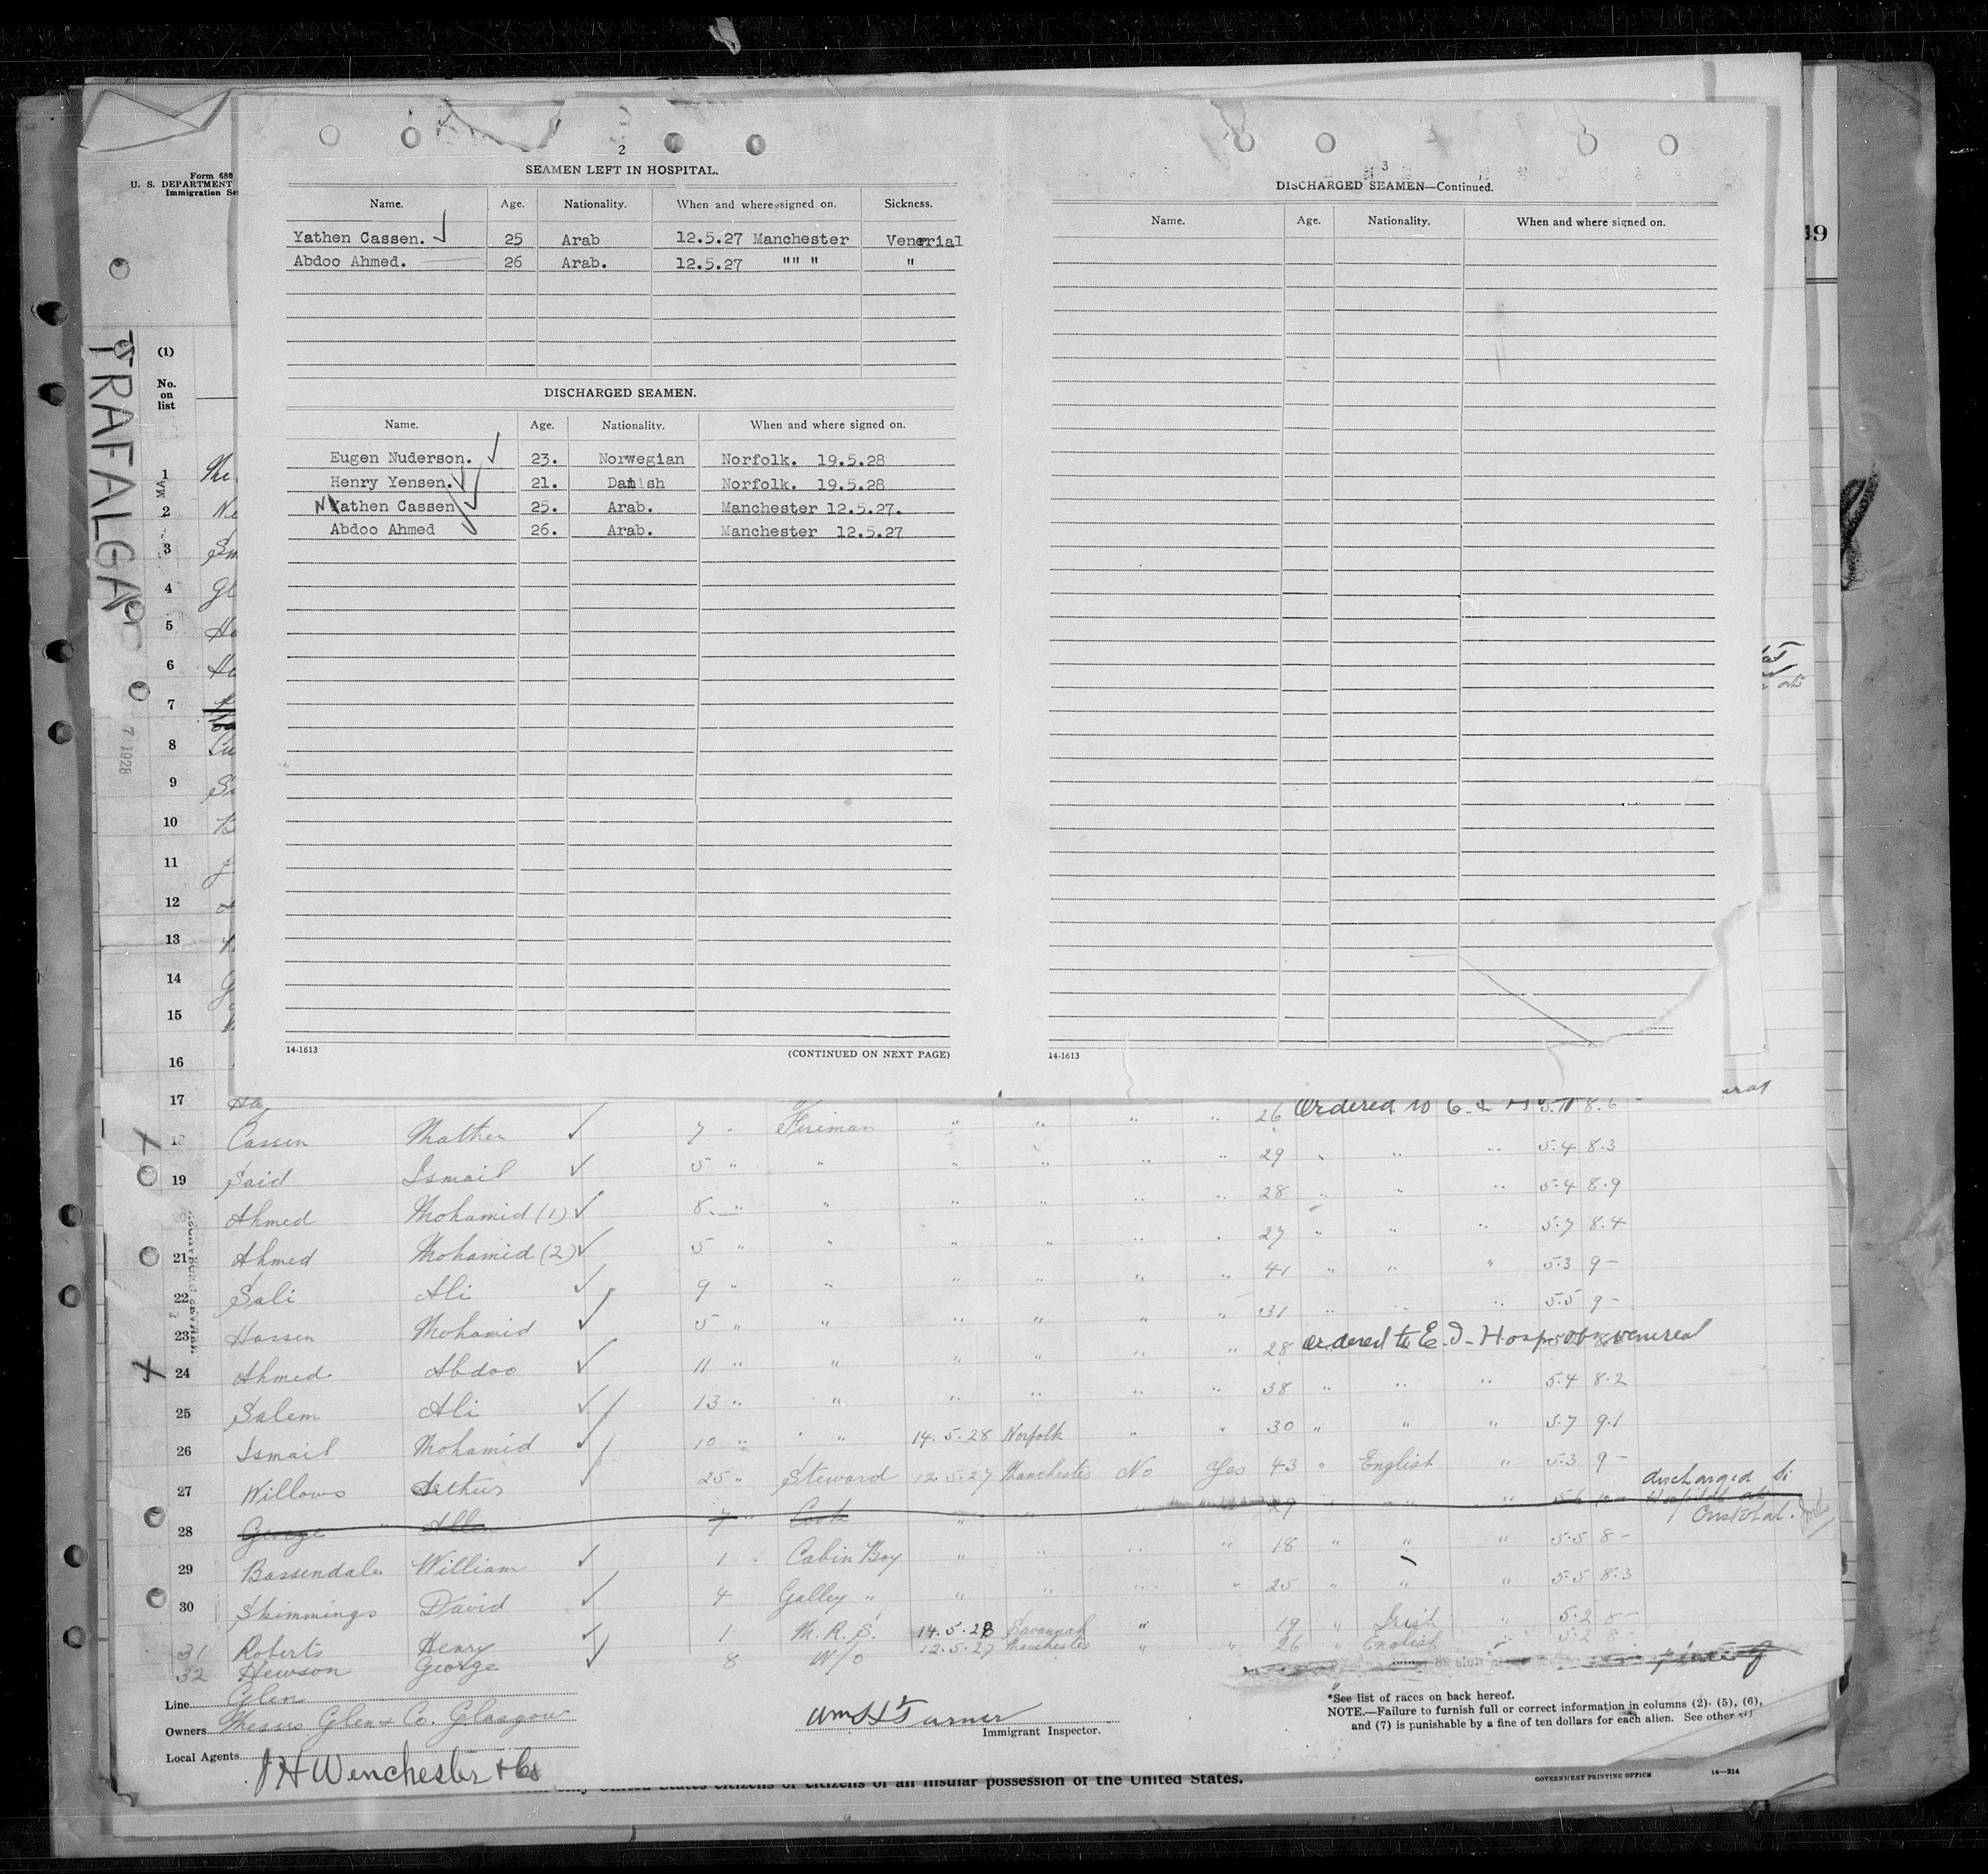 2
SEAMEN LEFT IN HOSPITAL.
Name. Age. Nationality. When and where signed on. Sickness.
Yathen Cassen. 25 Arab 12.5.27 Manchester Venerial
Abdoo Ahmed. 26 Arab. 12.5.27 "" " "
DISCHARGED SEAMEN.
Name. Age. Nationality. When and where signed on.
Eugen Nuderson. 23. Norwegian Norfolk. 19.5.28
Henry Yensen. 21. Danish Norfolk. 19.5.28
Yathen Cassen 25. Arab. Manchester 12.5.27.
Abdoo Ahmed 26. Arab. Manchester 12.5.27
14-1613 (CONTINUED ON NEXT PAGE)
3
DISCHARGED SEAMEN—Continued.
Name. Age. Nationality. When and where signed on.
14-1613
Form 680
U. S. DEPARTMENT
Immigration Se
TRAFALGA
7 1928
(1)
No.
on
list
1
2
3
4
5
6
7
8
9
10
11
12
13
14
15
16
17
18 Cassen Mather 7 Fireman " " " " 26 Ordered to 8.6
19 Said Ismail 5 " " " " " " 29 " " " 5.4 8.3
Ahmed Mohamid (1) 8 " " " " " " 28 " " " 5.4 8.9
21 Ahmed Mohamid (2) 5 " " " " " " 27 " " " 5.7 8.4
22 Sali Ali 9 " " " " " " 41 " " " 5.3 9-
23 Hassen Mohamid 5 " " " " " " 31 " " " 5.5 9-
24 Ahmed Abdoo 11 " " " " " " 28 Ordered to E.I. Hosp venereal
25 Salem Ali 13 " " " " " " 38 " " " 5.4 8.2
26 Ismail Mohamid 10 " " 14.5.28 Norfolk " " 30 " " " 5.7 9.1
27 Willows Arthur 25 " Steward 12.5.27 Manchester No Yes 43 " English " 5.3 9-
28 George Allen 7 " Cook " " " 29 " " " discharged Hospital
29 Bassendale William 1 Cabin Boy " " " " 18 " " " 5.5 8-
30 Skimmings David 4 Galley " " " " " 25 " " " 5.5 8.3
31 Roberts Henry 1 M.R.S. 14.5.28 Savannah " " 19 " Irish " 5.2 8-
32 Hewson George 8 W/O 12.5.27 Manchester " " 26 " English " 5.2 8
Line Glen
Owners Messrs Glen & Co. Glasgow
Local Agents J H Winchester & Co
Wm H Turner
Immigrant Inspector.
*See list of races on back hereof.
NOTE.—Failure to furnish full or correct information in columns (2). (5), (6),
and (7) is punishable by a fine of ten dollars for each alien. See other
United States citizens or citizens of an insular possession of the United States.
GOVERNMENT PRINTING OFFICE 14—214
49